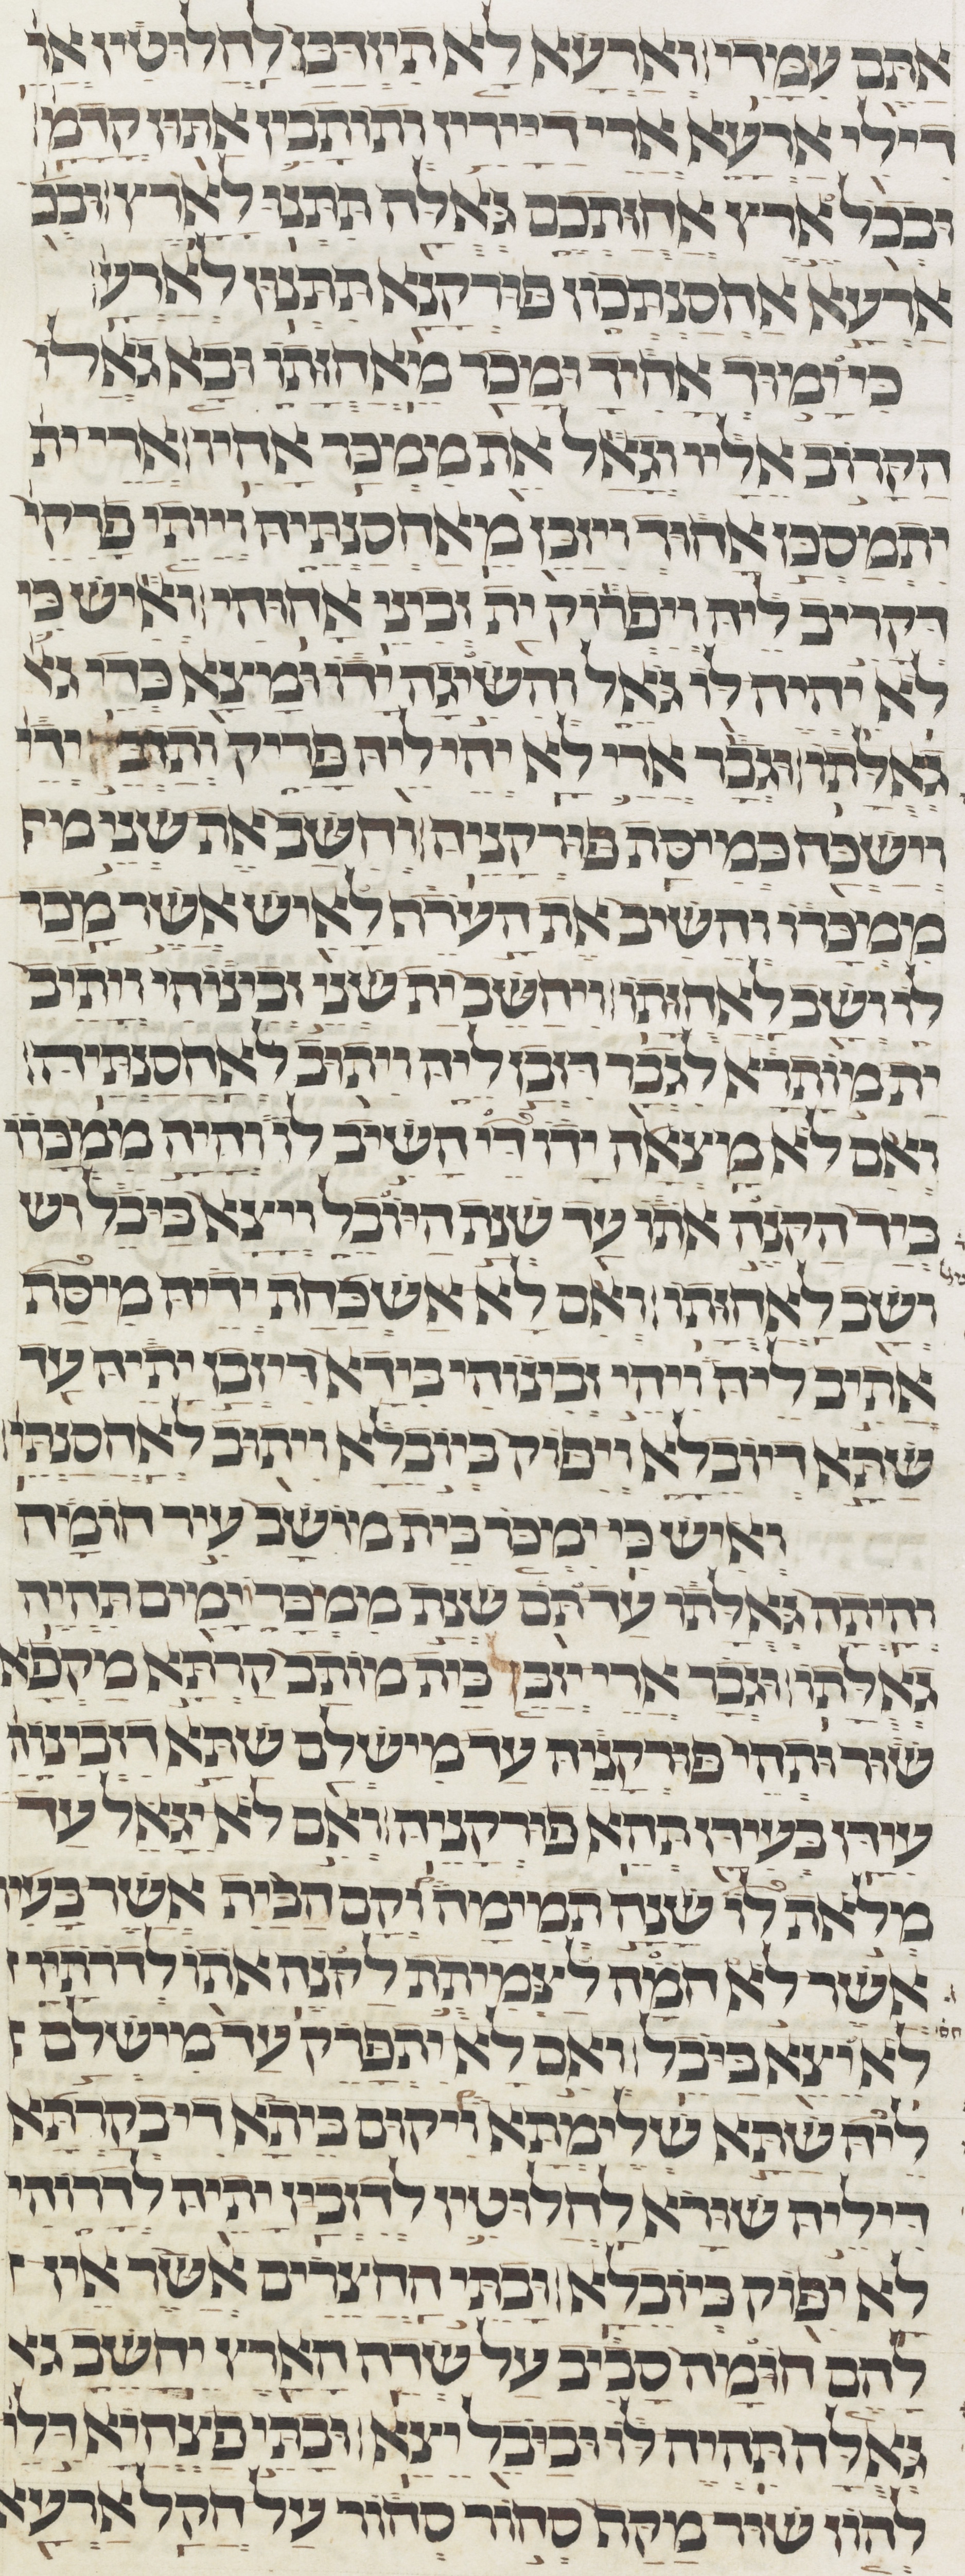 אתם עמדי וארעא לא תיזדבן לחלוטין ארי
דילי ארעא ארי דיירין ותותבין אתון קדמי
ובכל ארץ אחוזתכם גאלה תתנו לארץ ובכל
ארעא אחסנתכון פורקנא תתנון לארעא
כי ימוך אחיך ומכר מאחזתו ובא גאלו
הקרוב אליו וגאל את ממכר אחיו ארי ית
יתמסכן אחוך ויזבן מאחסנתיה וייתי פרקיה
דקריב ליה ויפרוק ית זביני אחוהי ואיש כי
לא יהיה לו גאל והשיגה ידו ומצא כדי גא
גאלתו וגבר ארי לא יהי ליה פריק ותדבק ידיה
וישכח כמיסת פורקניה וחשב את שני ממ
ממכרו והשיב את העדף לאיש אשר מכר
לו ושב לאחזתו ויחשב ית שני זבינוהי ויתיב
ית מותרא לגבר דזבן ליה ויתוב לאחסנתיה
ואם לא מצאה ידו די השיב לו והיה ממכרו
ביד הקנה אתו עד שנת היובל ויצא ביבל וש
ושב לאחזתו ואם לא אשכחת ידיה מיסת
אתיב ליה ויהי זבינוהי בידא דיזבן יתיה עד
שתא דיובלא ויפוק ביובלא ויתוב לאחסנתיה
ואיש כי ימכר בית מושב עיר חומה
והיתה גאלתו עד תם שנת ממכרו ימים תהיה
גאלתו וגבר ארי יזבין בית מותב קרתא מקפא
שור ותהי פורקניה עד מישלם שתא דזבינוהי
עידן בעידן תהא פורקניה ואם לא יגאל עד
מלאת לו שנה תמימה וקם הבית אשר בעיר
אשר לא חמה לצמיתת לקנה אתו לדרתיו
לא יצא ביבל ואם לא יתפרק עד מישלם
ליה שתא שלימתא ויקום ביתא די בקרתא
דיליה שורא לחלוטין לדזבין יתיה לדרוהי
לא יפוק ביובלא ובתי החצרים אשר אין
להם חומה סביב על שדה הארץ יחשב גא
גאלה תהיה לו וביבל יצא ובתי פצחיא דלית
להון שור מקף סחור סחור על חקל ארעא